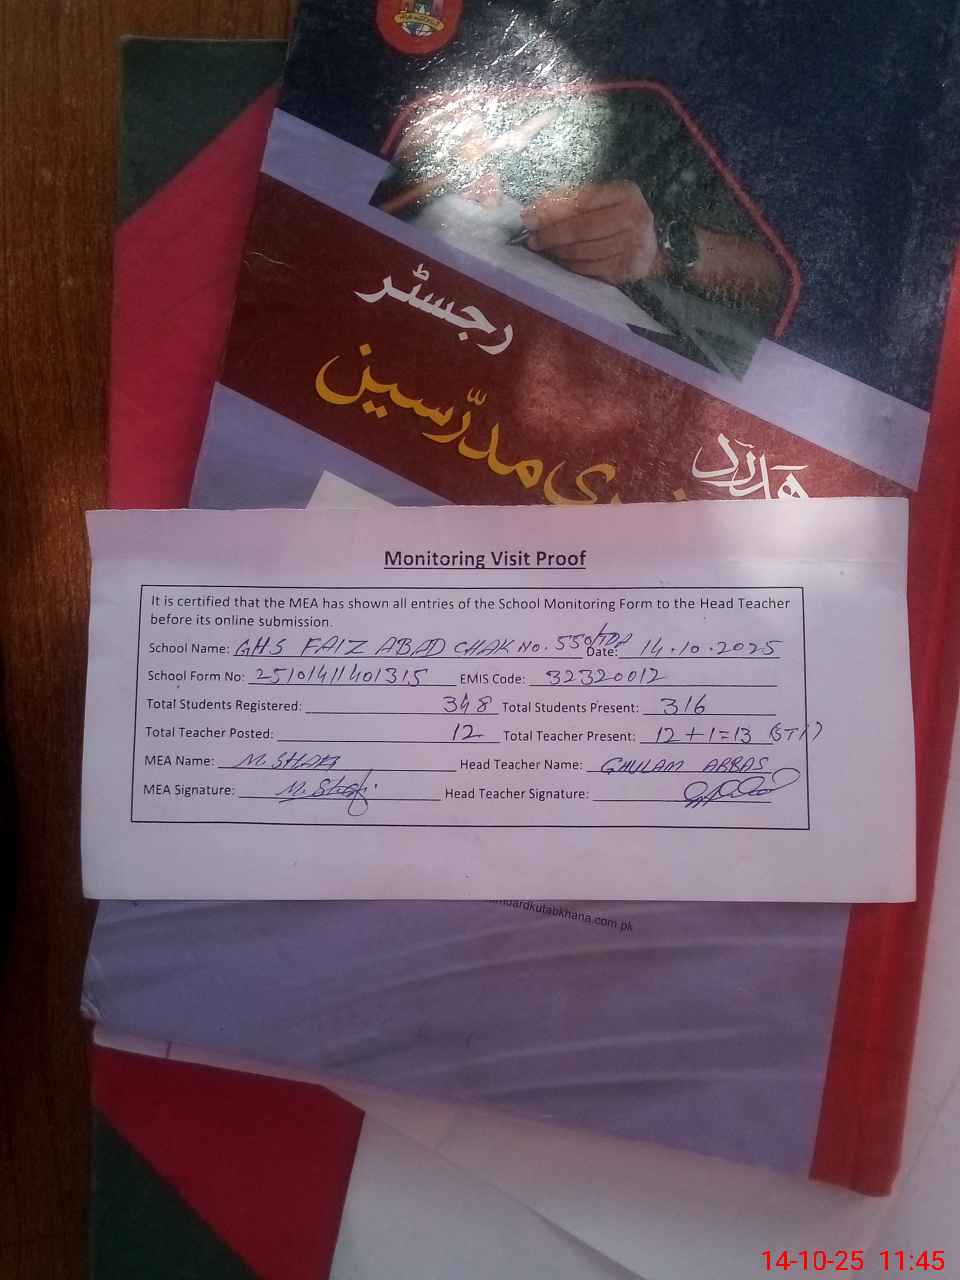 رجسٹر
مدرّسین
ہمدرد
Monitoring Visit Proof
It is certified that the MEA has shown all entries of the School Monitoring Form to the Head Teacher
before its online submission.
School Name: GHS FAIZ ABAD CHAK No. 550/TDA Date: 14.10.2025
School Form No: 2510141401315 EMIS Code: 32320012
Total Students Registered: 348 Total Students Present: 316
Total Teacher Posted: 12 Total Teacher Present: 12+1=13 (STI)
MEA Name: M. Head Teacher Name: GHULAM ABBAS
MEA Signature: Head Teacher Signature:
kutabkhana.com.pk
14-10-25 11:45